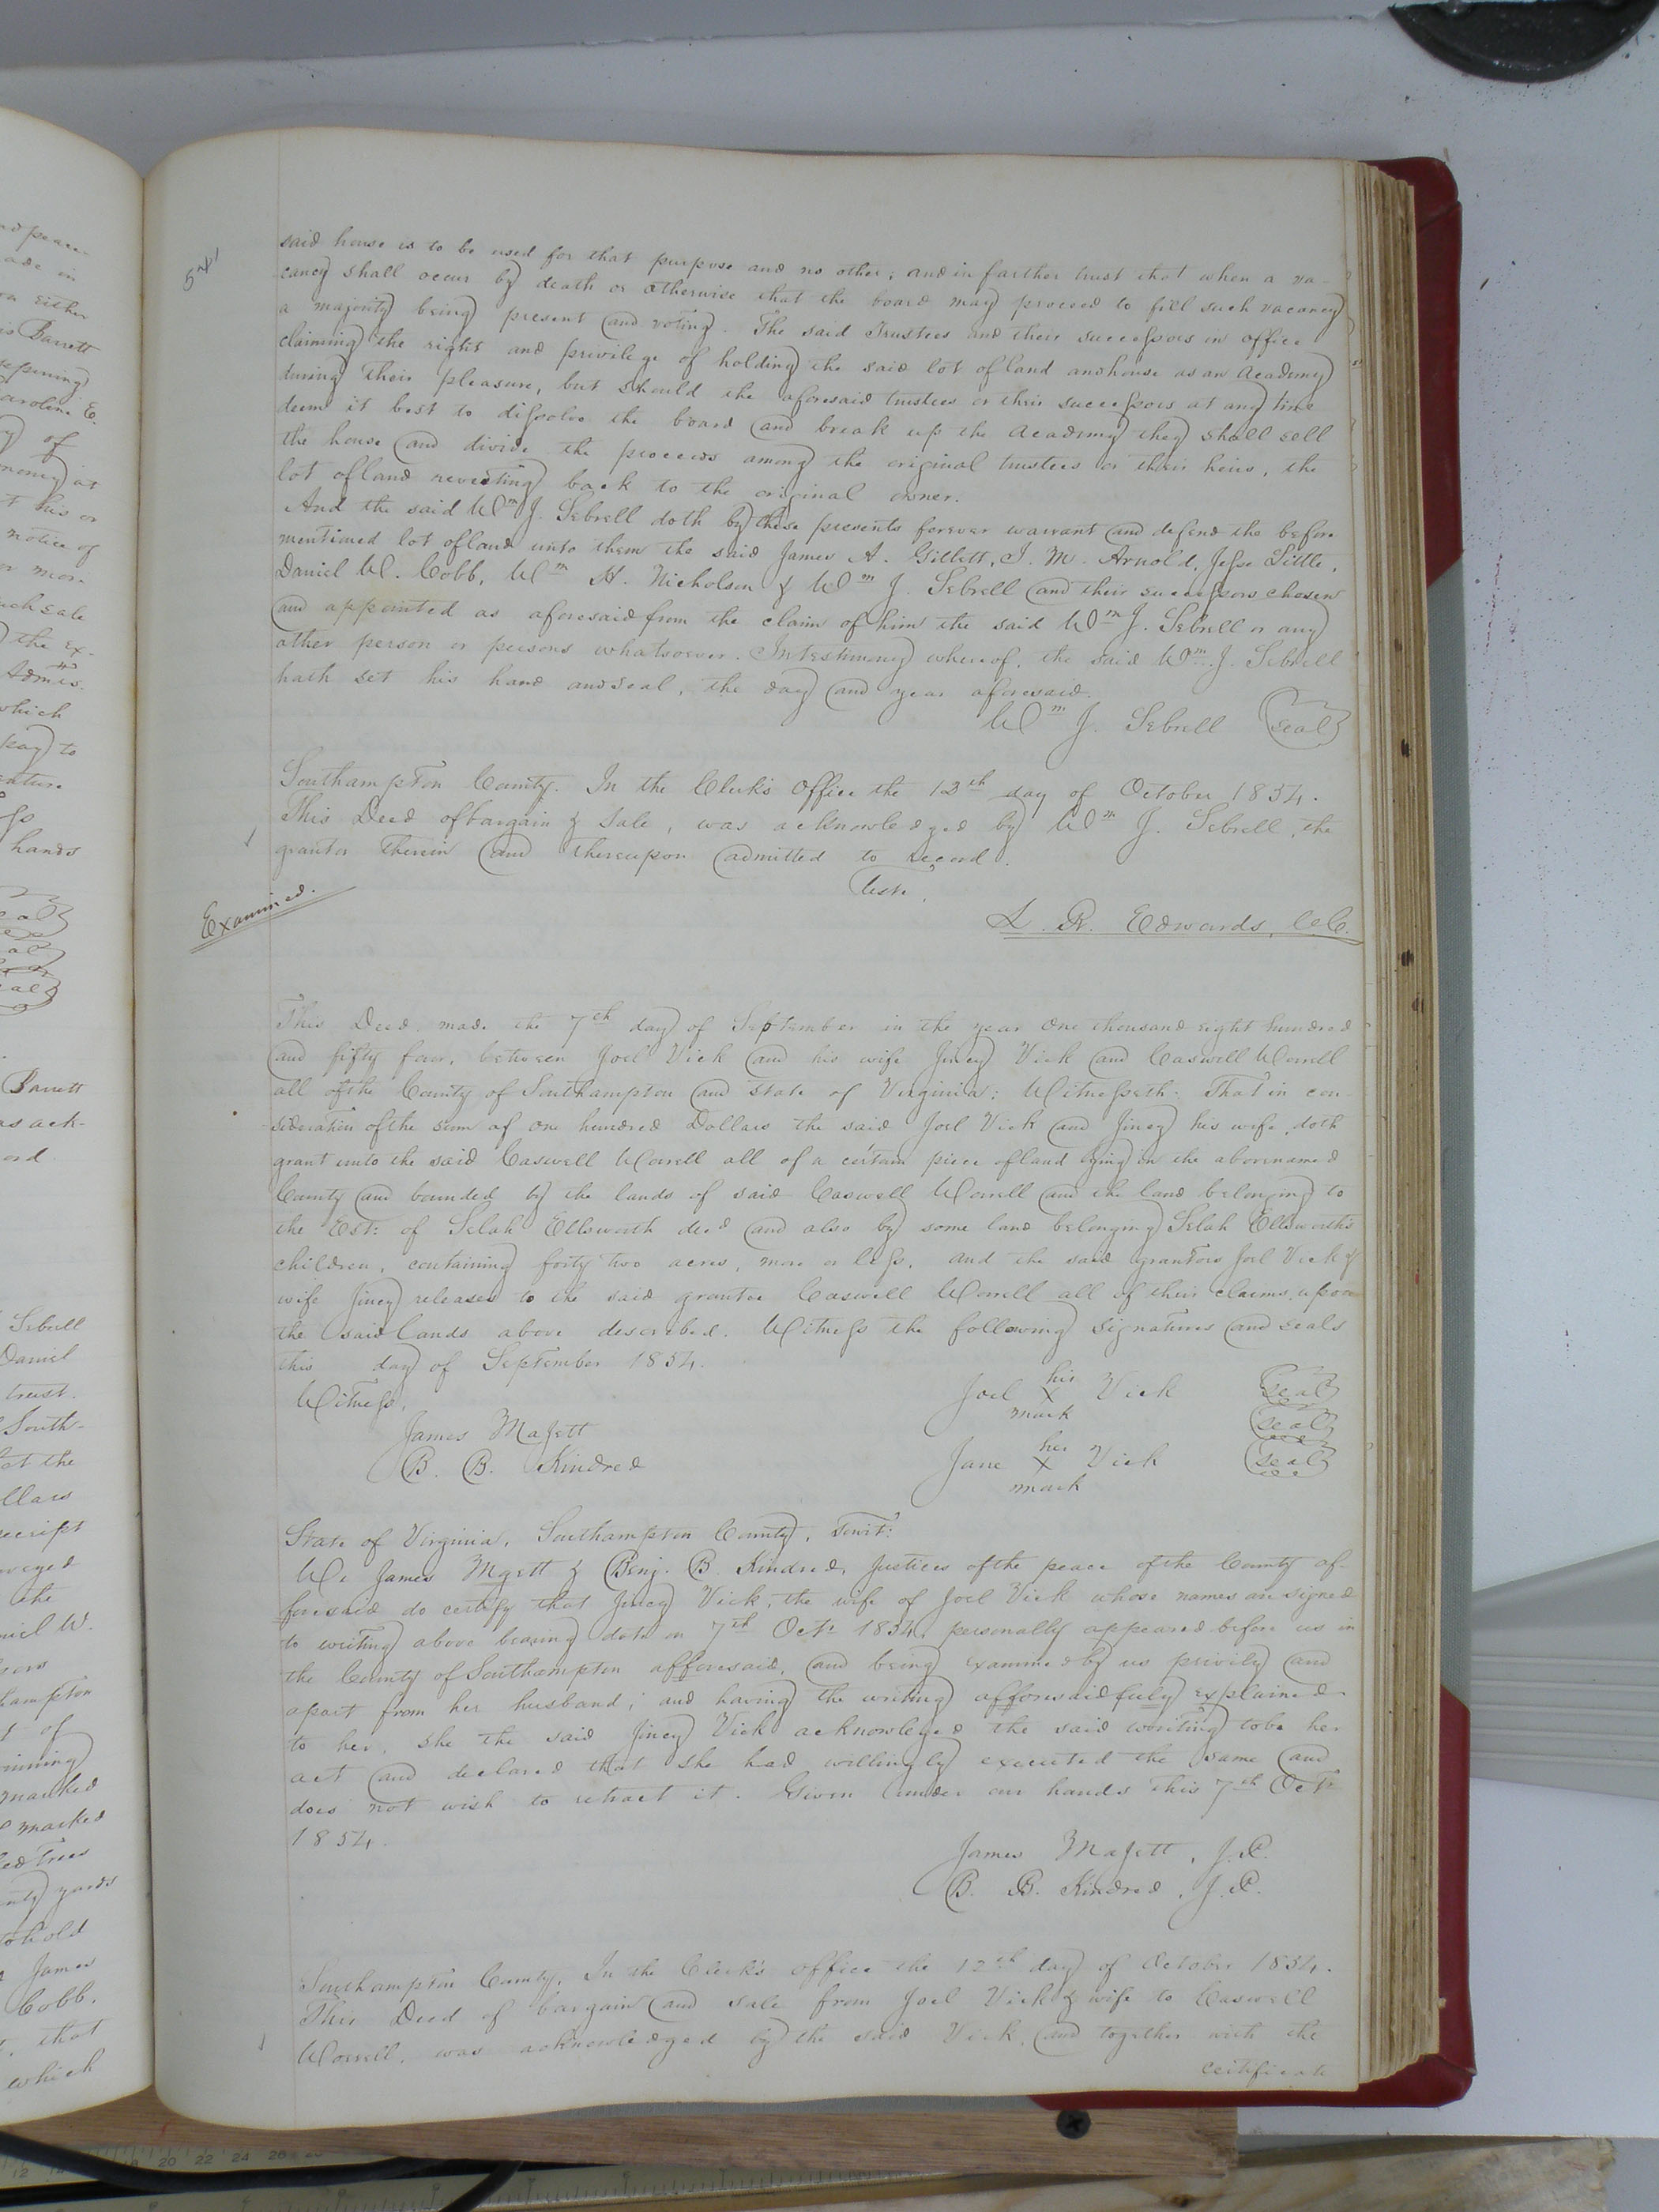 said house is to be used for that purpose and no other; and in farther trust that when a va-
cancy shall occur by death or otherwise that the board may proceed to fill such vacancy
a majority being present and voting. The said Trustees and their successors in office
claiming the right and privilege of holding the said lot of land and house as an Academy
during their pleasure, but should the aforesaid trustees or their successors at any time
deem it best to dissolve the board and break up the Academy they shall sell
the house and divide the proceeds among the original trustees or their heirs, the
lot of land revesting back to the original owner.
And the said Wm J. Sebrell doth by these presents forever warrant and defend the before
mentioned lot of land unto them the said James A. Gillett, J. M. Arnold, Jesse Little,
Daniel W. Cobb, Wm H. Nicholson & Wm J. Sebrell and their successors chosen
and appointed as aforesaid from the claim of him the said Wm J. Sebrell or any
other person or persons whatsoever. In testimony whereof, the said Wm J. Sebrell
hath set his hand and seal, the day and year aforesaid.
Wm J. Sebrell seal
Southampton County. In the Clerk's Office the 12th day of October 1854.
This Deed of bargain & Sale, was acknowledged by Wm J. Sebrell, the
grantor therein and thereupon admitted to record.
Teste,
Examined.
L. R. Edwards, CC.
This Deed, made the 7th day of September in the year One thousand eight hundred
and fifty four, between Joel Vick and his wife Jincy Vick and Caswell Worrell
all of the County of Southampton and State of Virginia: Witnesseth: That in con-
sideration of the sum of one hundred Dollars the said Joel Vick and Jincy his wife, doth
grant unto the said Caswell Worrell all of a certain piece of land lying in the abovenamed
County and bounded by the lands of said Caswell Worrell and the land belonging to
the Est: of Selah Ellsworth decd and also by some land belonging Selah Ellsworth's
children, containing forty two acres, more or less, and the said grantors Joel Vick &
wife Jincy releases to the said grantee Caswell Worrell all of their claims upon
the said lands above described. Witness the following signatures and seals
this day of September 1854.
Witness,
Joel his X mark Vick seal
James Majett
seal
B. B. Kindred
Jane her X mark Vick seal
State of Virginia, Southampton County, Towit:
We James Majett & Benj. B. Kindred, Justices of the peace of the County af-
foresaid do certify that Jincy Vick, the wife of Joel Vick whose names are signed
to writing above bearing date on 7th Oct: 1854, personally appeared before us in
the County of Southampton afforesaid, and being examined by us privily and
apart from her husband; and having the writing afforesaid fuly explained
to her, she the said Jincy Vick acknowleged the said writing to be her
act and declared that she had willingly executed the same and
does not wish to retract it. Given under our hands this 7th Oct:
1854.
James Majett, J.P.
B. B. Kindred, J.P.
Southampton County, In the Clerk's office the 12th day of October 1854.
This Deed of bargain and sale from Joel Vick & wife to Caswell
Worrell, was acknowledged by the said Vick, and together with the
certificate